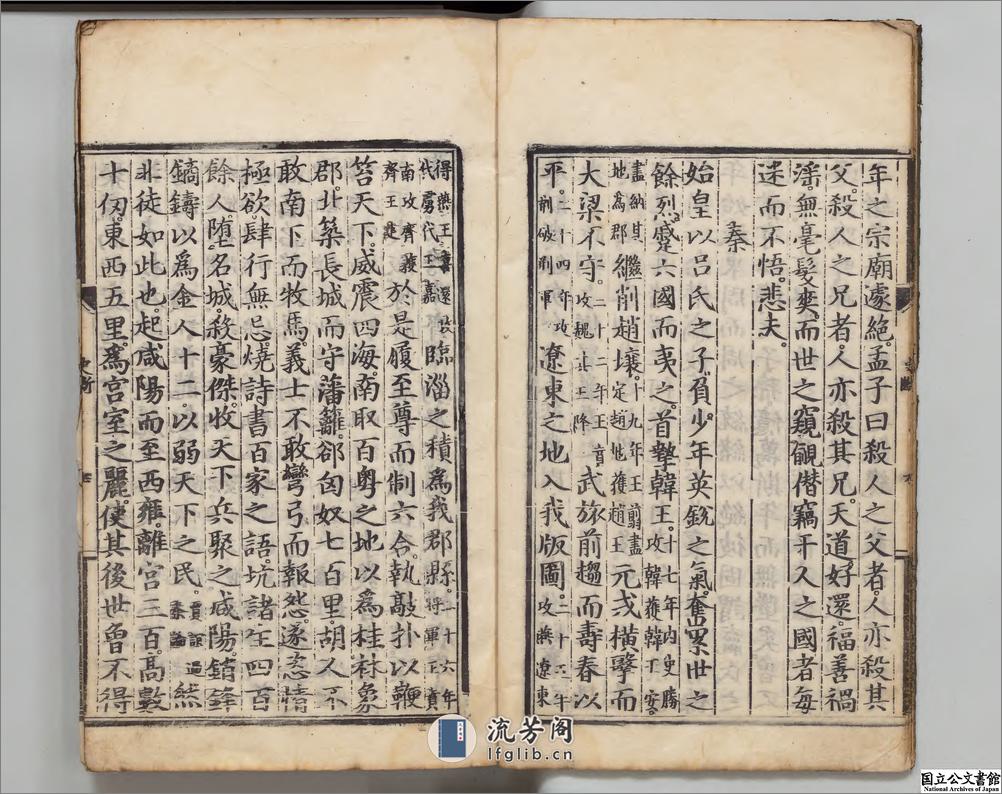 年之宗廟遽絕孟子曰殺人之父者人亦殺其
父殺人之兄者人亦殺其兄天道好還福善禍
淫無毫髮爽而世之窺覦僭竊干人之國者每
迷而不悟悲夫
秦
始皇以呂氏之子負少年英銳之氣奮累世之
餘烈蹙六國而夷之首摯韓王十七年内史勝攻韓獲韓王安
盡納其地爲郡繼削趙壤十九年王翦盡定趙地獲趙王元戎橫擊而
大梁不守二十二年王賁攻魏其王降武旅前趨而壽春以
平二十四年攻荆破荆軍遼東之地入我版圖二十五年攻燕遼東
得燕王喜還攻代虜代王嘉臨淄之積爲我郡縣二十六年將軍王賁
南攻齊獲齊王建於是履至尊而制六合執敲扑以鞭
笞天下威震四海南取百粤之地以爲桂林象
郡北築長城而守藩籬郤匈奴七百里胡人不
敢南下而牧馬義士不敢彎弓而報怨遂恣情
極欲肆行無忌燒詩書百家之語坑諸生四百
餘人墮名城殺豪傑收天下兵聚之咸陽銷鋒
鏑鑄以爲金人十二以弱天下之民賈誼過秦論然
非徒如此也起咸陽而至西雍離宮三百高數
十仞東西五里爲宮室之麗使其後世曾不得
史斷
流芳阁
lfglib.cn
国立公文書館
National Archives of Japan